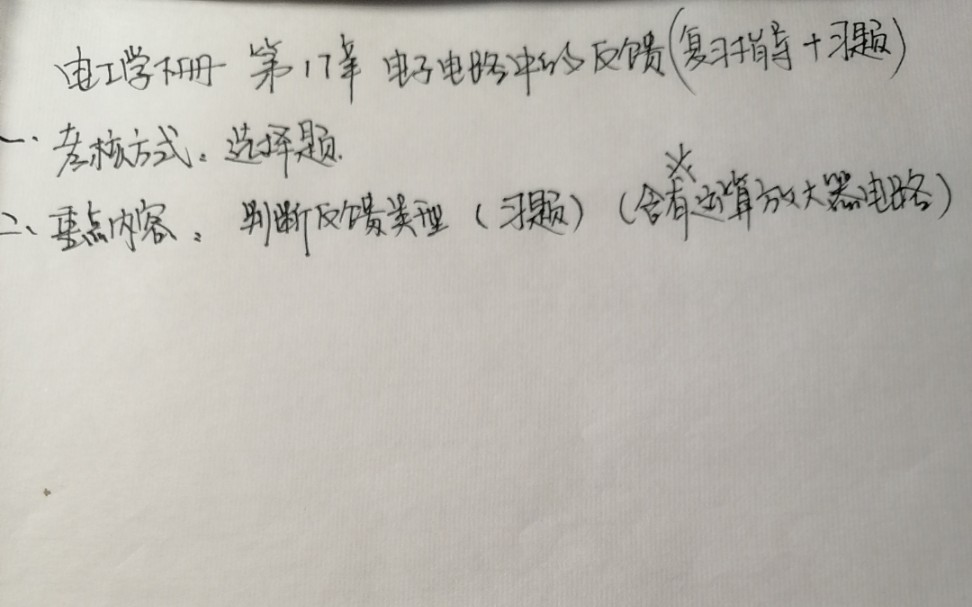 电工学下册 第17章 电子电路中的反馈(复习指导+习题)
一. 考核方式: 选择题.
二、重点内容: 判断反馈类型(习题)(含有运算放大器电路)